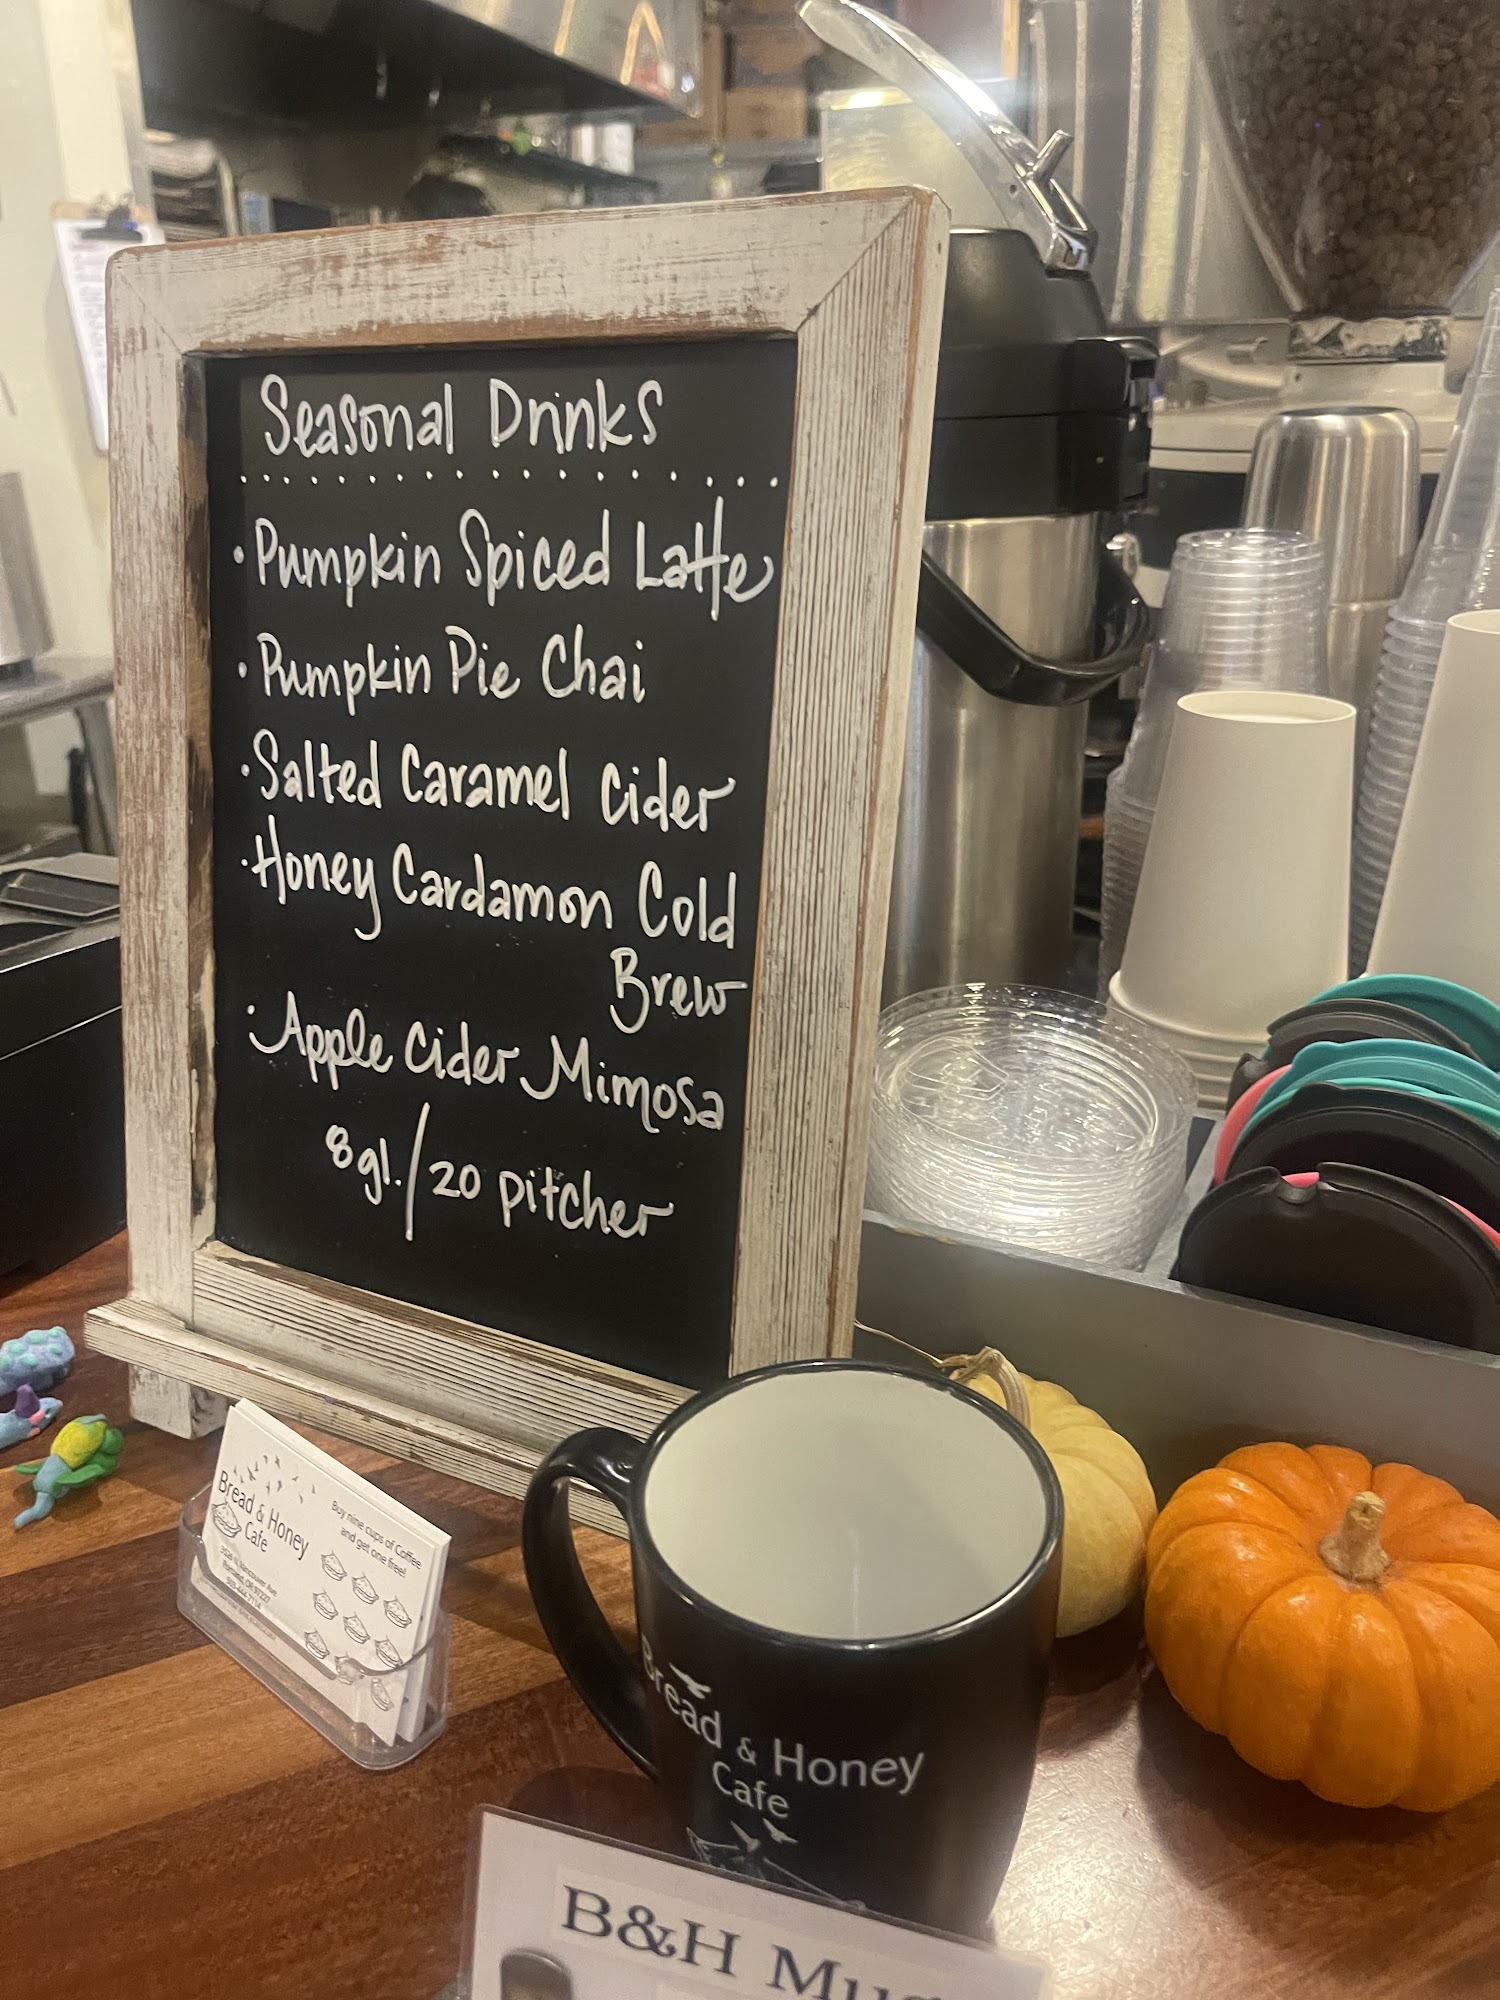 Seasonal Drinks
· Pumpkin Spiced Latte
· Pumpkin Pie Chai
· Salted Caramel Cider
· Honey Cardamon Cold
Brew
· Apple Cider Mimosa
8 gl./20 pitcher
Bread & Honey
Cafe
Portland, OR 97227
Buy nine cups of Coffee
and get one free!
Bread & Honey
Cafe
B&H